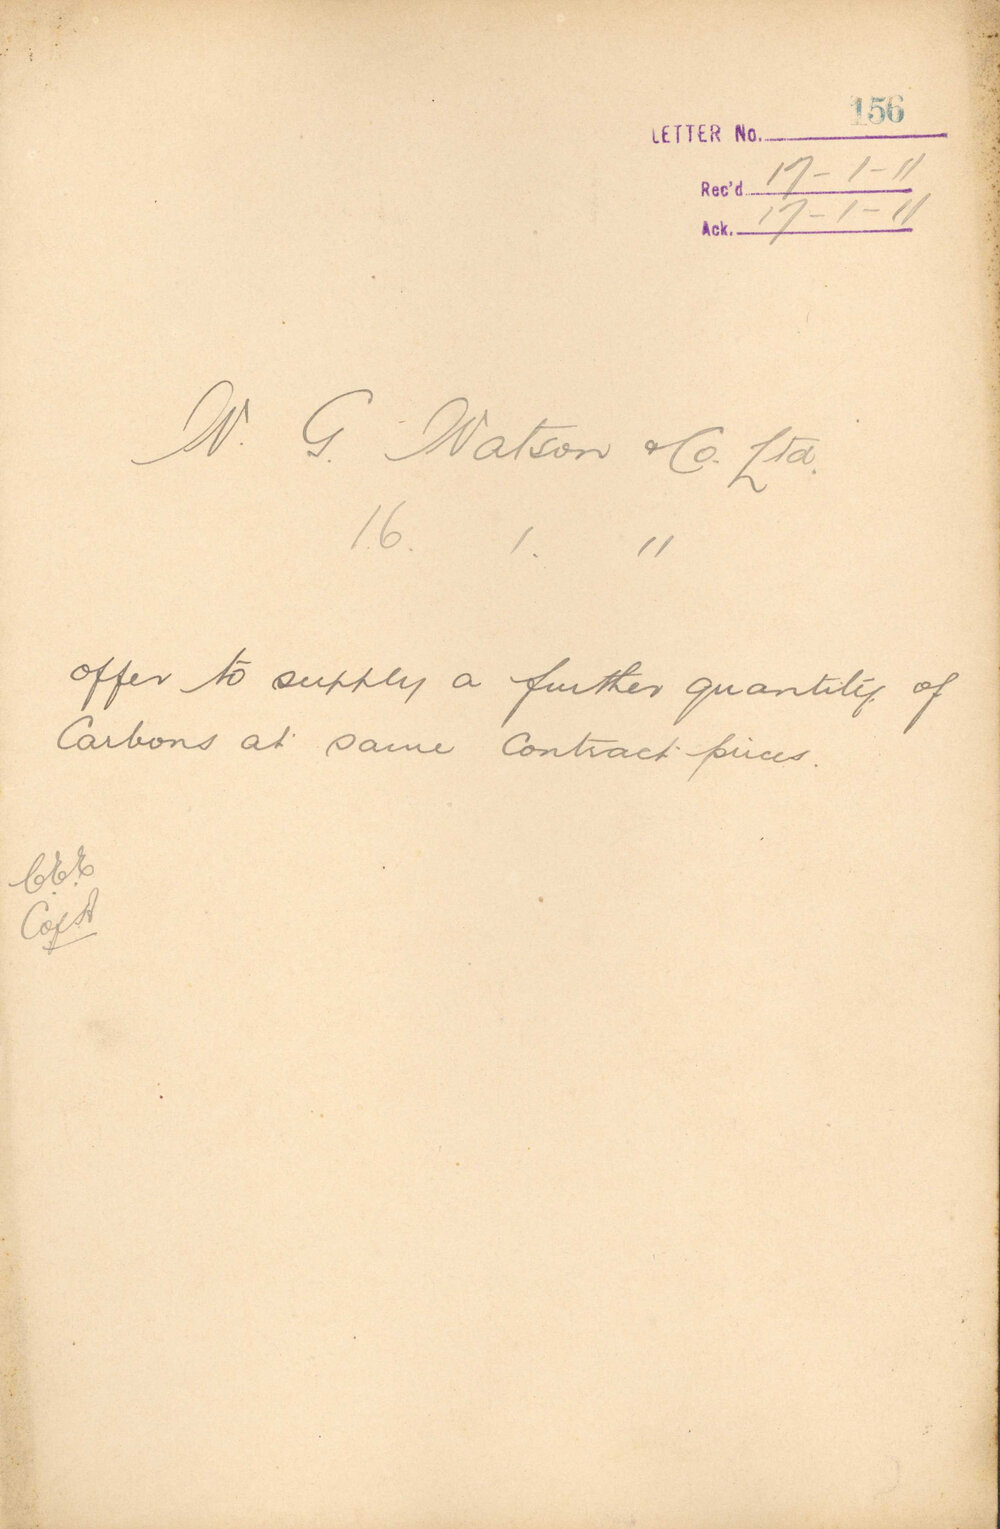 156
LETTER No.
Rec'd 17-1-11
Ack. 17-1-11
W. G. Watson & Co. Ltd.
16. 1. 11
offer to supply a further quantity of
Carbons at same contract prices.
C.E.E
C of A